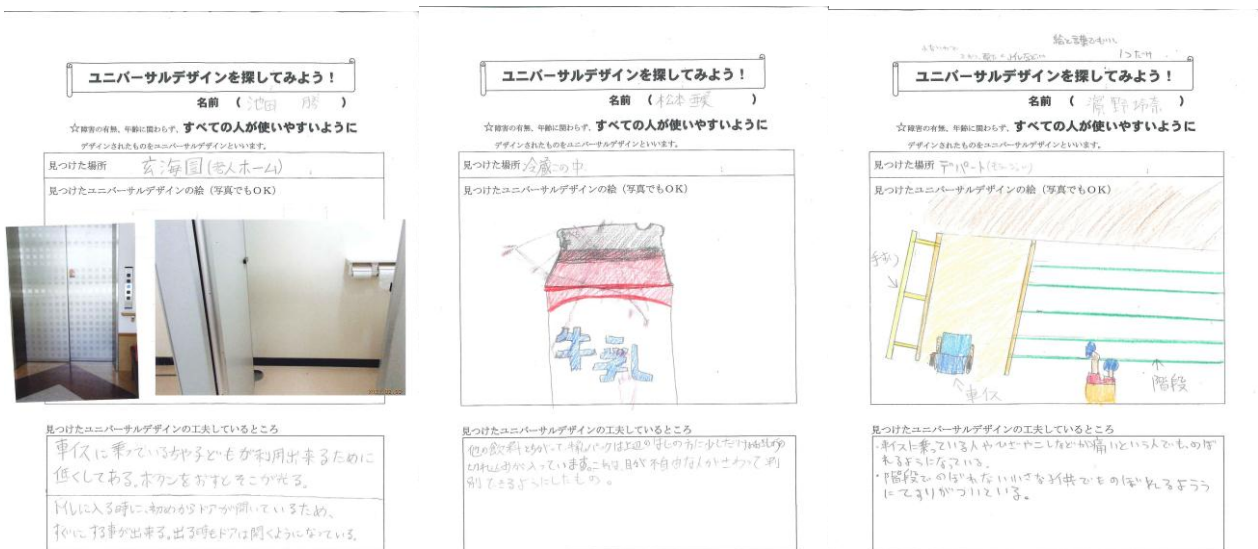 ユニバーサルデザインを探してみよう！
名前 （ 池田 勝 ）
☆障害の有無、年齢に関わらず、すべての人が使いやすいように
デザインされたものをユニバーサルデザインといいます。
見つけた場所 玄海園(老人ホーム)
見つけたユニバーサルデザインの絵（写真でもOK）
見つけたユニバーサルデザインの工夫しているところ
車イスに乗っている方や子どもが利用出来るために
低くしてある。ボタンをおすとそこが光る。
トイレに入る時に、初めからドアが開いているため、
すぐに する事が出来る。出る時もドアは開くようになっている。
ユニバーサルデザインを探してみよう！
名前 （ 松本 ）
☆障害の有無、年齢に関わらず、すべての人が使いやすいように
デザインされたものをユニバーサルデザインといいます。
見つけた場所 冷蔵この中
見つけたユニバーサルデザインの絵（写真でもOK）
牛乳
見つけたユニバーサルデザインの工夫しているところ
他の飲料とちがって、パックは上辺のはしの方に少しだけ
切れ込みが入っています。これは、目が不自由な人がさわって判
別できるようにしたもの。
絵と言葉で
ユニバーサルデザインを探してみよう！
名前 （ 濱野 ）
☆障害の有無、年齢に関わらず、すべての人が使いやすいように
デザインされたものをユニバーサルデザインといいます。
見つけた場所 デパート
見つけたユニバーサルデザインの絵（写真でもOK）
手すり
車イス
階段
見つけたユニバーサルデザインの工夫しているところ
・車イスに乗っている人やひざやこしなどが痛いという人でも、のぼ
れるようになっている。
・階段でのぼれない小さな子供でものぼれるようう
にてすりがついている。